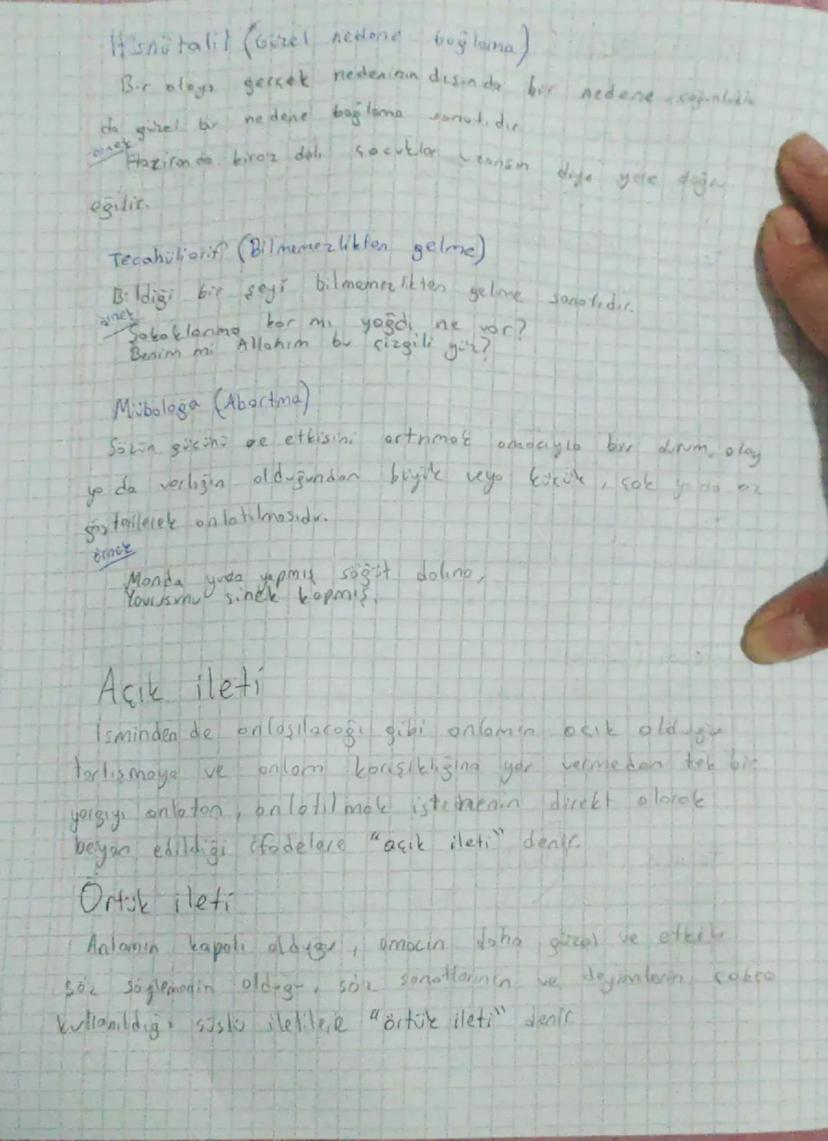 Hüsnütalil (Güzel nedene bağlama)
Bir olayı gerçek nedeninin dışında bir nedene çoğunlukla
da güzel bir nedene bağlama sanatıdır
örnek
Haziranda kiraz dalı çocuklar uzansın diye yere doğru
eğilir.
Tecahüliarif (Bilmemezlikten gelme)
Bildiği bir şeyi bilmemezlikten gelme sanatıdır.
örnek
Şakaklarıma kar mı yağdı ne var?
Benim mi Allahım bu çizgili yüz?
Mübalağa (Abartma)
Sözün gücünü ve etkisini artırmak amacıyla bir durum, olay
ya da varlığın olduğundan büyük veya küçük, çok ya da az
gösterilerek anlatılmasıdır.
örnek
Manda yuva yapmış söğüt dalına,
Yavrusunu sinek kapmış.
Açık ileti
İsminden de anlaşılacağı gibi anlamın açık olduğu
tartışmaya ve anlam karışıklığına yer vermeden tek bir
yargıyı anlatan, anlatılmak istenenin direkt olarak
beyan edildiği ifadelere "açık ileti" denir.
Örtük ileti
Anlamın kapalı olduğu, amacın daha güzel ve etkili
söz söylemenin olduğu, söz sanatlarının ve deyimlerin çokça
kullanıldığı süslü iletilere "örtük ileti" denir